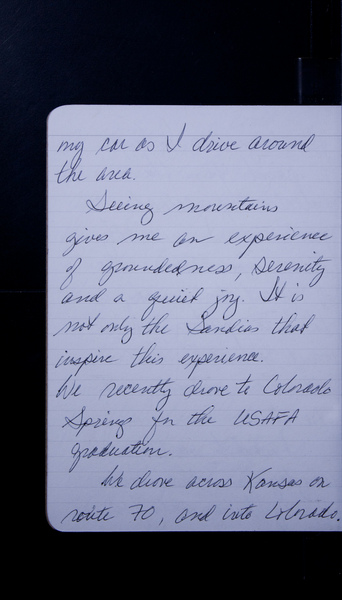 my car as I drive around
the area.
Seeing mountains
gives me an experience
of groundedness, serenity
and a quiet joy. It is
not only the Sandias that
inspire this experience.
We recently drove to Colorado
Springs for the USAFA
graduation.
We drove across Kansas on
route 70, and into Colorado.